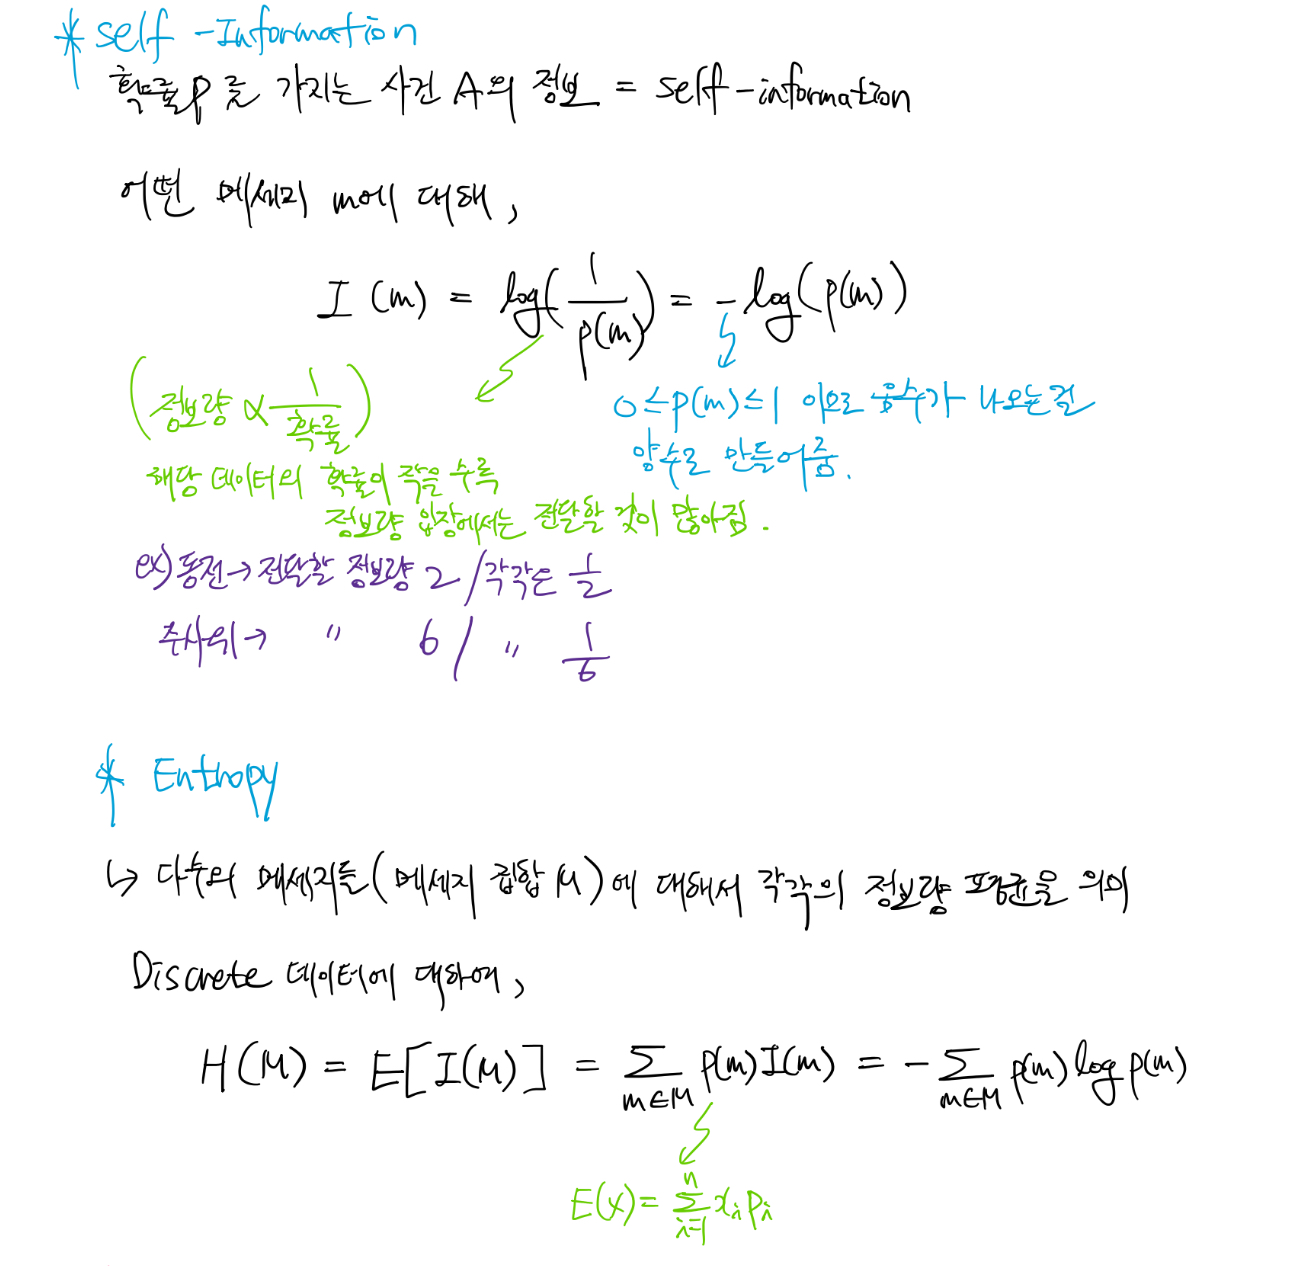 * self-Information
확률 p를 가지는 사건 A의 정보 = self-information
어떤 메세지 m에 대해,
I(m) = log(1/p(m)) = -log(p(m))
(정보량 ∝ 1/확률)
0≤p(m)≤1 이므로 음수가 나오는걸
양수로 만들어줌.
해당 데이터의 확률이 작을 수록
정보량 입장에서는 전달할 것이 많아짐.
ex) 동전 → 전달할 정보량 2 / 각각은 1/2
주사위 → " 6 / " 1/6
* Entropy
↳ 다수의 메세지들(메세지 집합 M)에 대해서 각각의 정보량 평균을 의미
Discrete 데이터에 대하여,
H(M) = E[I(M)] = Σ_{m∈M} p(m)I(m) = -Σ_{m∈M} p(m)log p(m)
E(x) = Σ_{i=1}^{n} x_i p_i